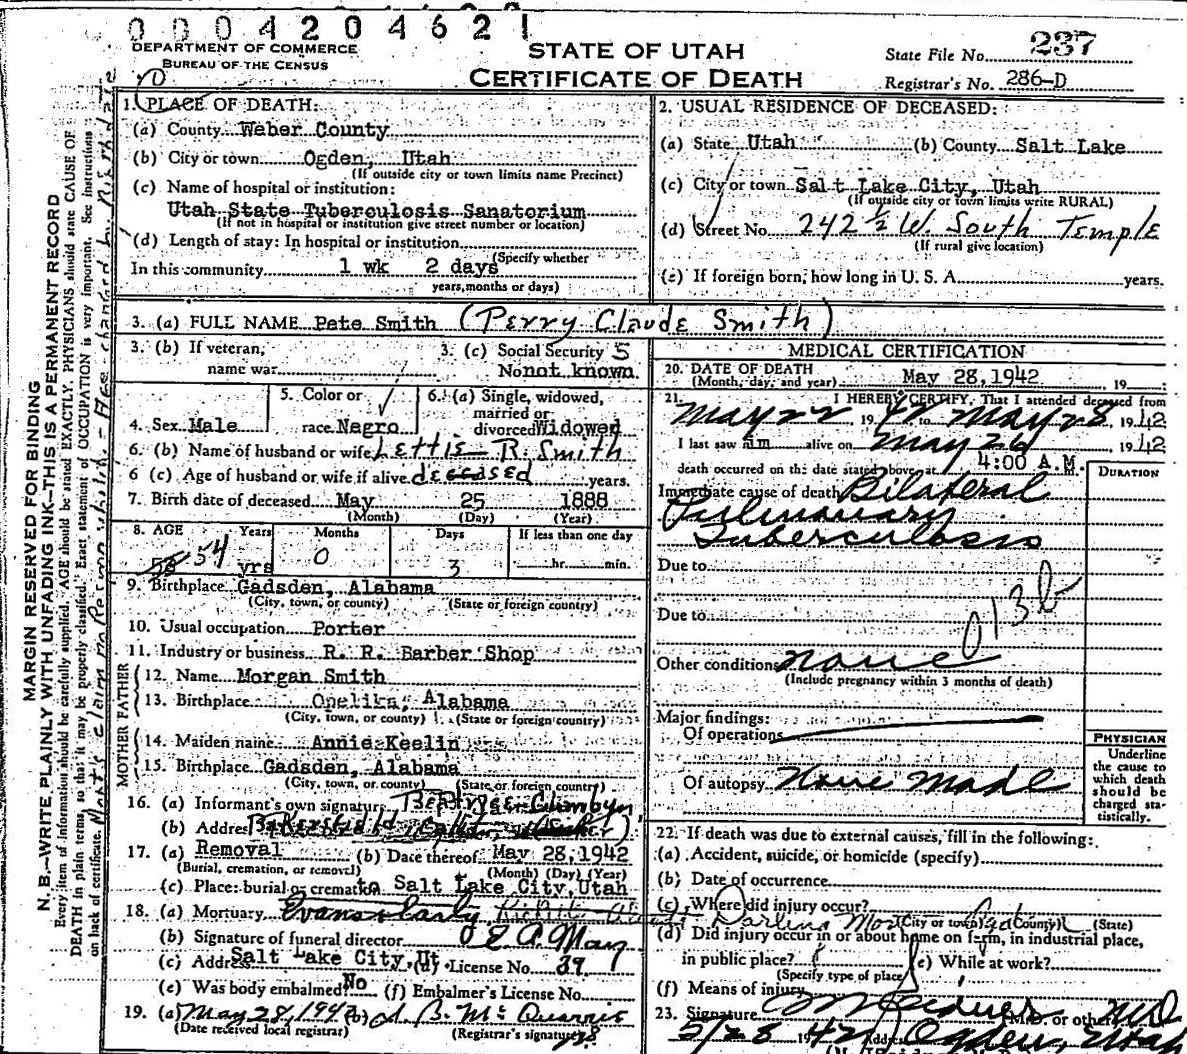 0 0 0 4 2 0 4 6 2 1
DEPARTMENT OF COMMERCE
BUREAU OF THE CENSUS
STATE OF UTAH
CERTIFICATE OF DEATH
State File No. 237
Registrar's No. 286-D
MARGIN RESERVED FOR BINDING
N. B.—WRITE PLAINLY WITH UNFADING INK—THIS IS A PERMANENT RECORD
Every item of information should be carefully supplied. AGE should be stated EXACTLY. PHYSICIANS should state CAUSE OF
DEATH in plain terms, so that it may be properly classified. Exact statement of OCCUPATION is very important. See instructions
on back of certificate.
1. PLACE OF DEATH:
(a) County Weber County
(b) City or town Ogden, Utah
(If outside city or town limits name Precinct)
(c) Name of hospital or institution:
Utah State Tuberculosis Sanatorium
(If not in hospital or institution give street number or location)
(d) Length of stay: In hospital or institution
(Specify whether
In this community 1 wk 2 days
years, months or days)
2. USUAL RESIDENCE OF DECEASED:
(a) State Utah (b) County Salt Lake
(c) City or town Salt Lake City, Utah
(If outside city or town limits write RURAL)
(d) Street No. 242 ½ W. South Temple
(If rural give location)
(e) If foreign born, how long in U. S. A. years.
3. (a) FULL NAME Pete Smith (Perry Claude Smith)
3. (b) If veteran,
name war
3. (c) Social Security
No. not known
4. Sex Male
5. Color or
race Negro
6. (a) Single, widowed,
married or
divorced Widowed
6. (b) Name of husband or wife Lettie R. Smith
6 (c) Age of husband or wife if alive deceased years.
7. Birth date of deceased May 25 1888
(Month) (Day) (Year)
8. AGE Years Months Days If less than one day
54 yrs 0 3 hr. min.
9. Birthplace Gadsden, Alabama
(City, town, or county) (State or foreign country)
10. Usual occupation Porter
11. Industry or business R. R. Barber Shop
FATHER
12. Name Morgan Smith
13. Birthplace Opelika, Alabama
(City, town, or county) (State or foreign country)
MOTHER
14. Maiden name Annie Keelin
15. Birthplace Gadsden, Alabama
(City, town, or county) (State or foreign country)
16. (a) Informant's own signature
(b) Address
17. (a) Removal (b) Date thereof May 28, 1942
(Burial, cremation, or removal) (Month) (Day) (Year)
(c) Place: burial or cremation to Salt Lake City, Utah
18. (a) Mortuary
(b) Signature of funeral director
(c) Address Salt Lake City, Ut (d) License No. 39
(e) Was body embalmed? No (f) Embalmer's License No.
19. (a) May 28, 1942 (b)
(Date received local registrar) (Registrar's signature)
MEDICAL CERTIFICATION
20. DATE OF DEATH
(Month, day, and year) May 28, 1942 , 19 :
21. I HEREBY CERTIFY, That I attended deceased from
May 22 19 42 to May 28, 1942
I last saw him alive on May 26 1942
death occurred on the date stated above at 4:00 A.M.
DURATION
Immediate cause of death Bilateral
Pulmonary
Tuberculosis
Due to
Due to
Other conditions none
(Include pregnancy within 3 months of death)
Major findings:
Of operations
Of autopsy None made
PHYSICIAN
Underline
the cause to
which death
should be
charged sta-
tistically.
22. If death was due to external causes, fill in the following:
(a) Accident, suicide, or homicide (specify)
(b) Date of occurrence
(c) Where did injury occur?
(City or town) (County) (State)
(d) Did injury occur in or about home on farm, in industrial place,
in public place? (e) While at work?
(Specify type of place)
(f) Means of injury
23. Signature (M.D. or other) MD
5/28 1942 Address Ogden, Utah